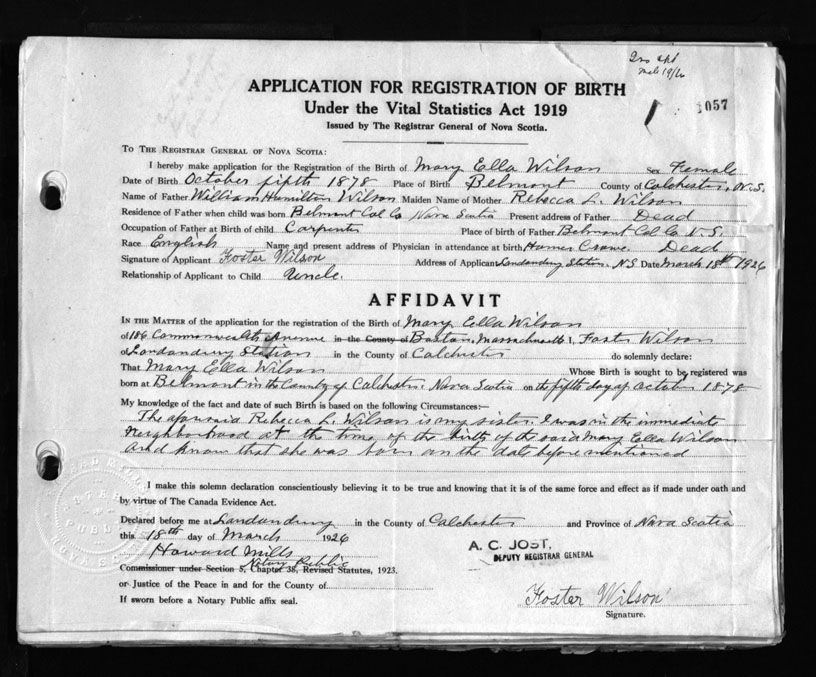 1057
APPLICATION FOR REGISTRATION OF BIRTH
Under the Vital Statistics Act 1919
Issued by The Registrar General of Nova Scotia.
TO THE REGISTRAR GENERAL OF NOVA SCOTIA:
I hereby make application for the Registration of the Birth of Mary Ella Wilson Sex Female
Date of Birth October fifth 1878 Place of Birth Belmont County of Colchester, N.S.
Name of Father William Hamilton Wilson Maiden Name of Mother Rebecca L. Wilson
Residence of Father when child was born Belmont Col Co Nova Scotia Present address of Father Dead
Occupation of Father at Birth of child Carpenter Place of birth of Father Belmont Col Co N.S.
Race English Name and present address of Physician in attendance at birth Homer Crowe. Dead
Signature of Applicant Foster Wilson Address of Applicant Londonderry Station. N.S Date March 18th 1926
Relationship of Applicant to Child Uncle.
AFFIDAVIT
IN THE MATTER of the application for the registration of the Birth of Mary Ella Wilson
of 186 Commonwealth Avenue in the County of Boston, Massachusetts I, Foster Wilson
of Londonderry Station in the County of Colchester do solemnly declare:
That Mary Ella Wilson Whose Birth is sought to be registered was
born at Belmont in the County of Colchester. Nova Scotia on the fifth day of october 1878
My knowledge of the fact and date of such Birth is based on the following Circumstances:—
The aforesaid Rebecca L. Wilson is my sister. I was in the immediate
neighborhood at the time of the birth of the said Mary Ella Wilson
and know that she was born on the date before mentioned
I make this solemn declaration conscientiously believing it to be true and knowing that it is of the same force and effect as if made under oath and
by virtue of The Canada Evidence Act.
Declared before me at Londonderry in the County of Colchester and Province of Nova Scotia
this 18th day of March 1926
Howard Mills
A. C. JOST,
DEPUTY REGISTRAR GENERAL
Notary Public
Commissioner under Section 5, Chapter 38, Revised Statutes, 1923.
or Justice of the Peace in and for the County of
If sworn before a Notary Public affix seal.
Foster Wilson
Signature.